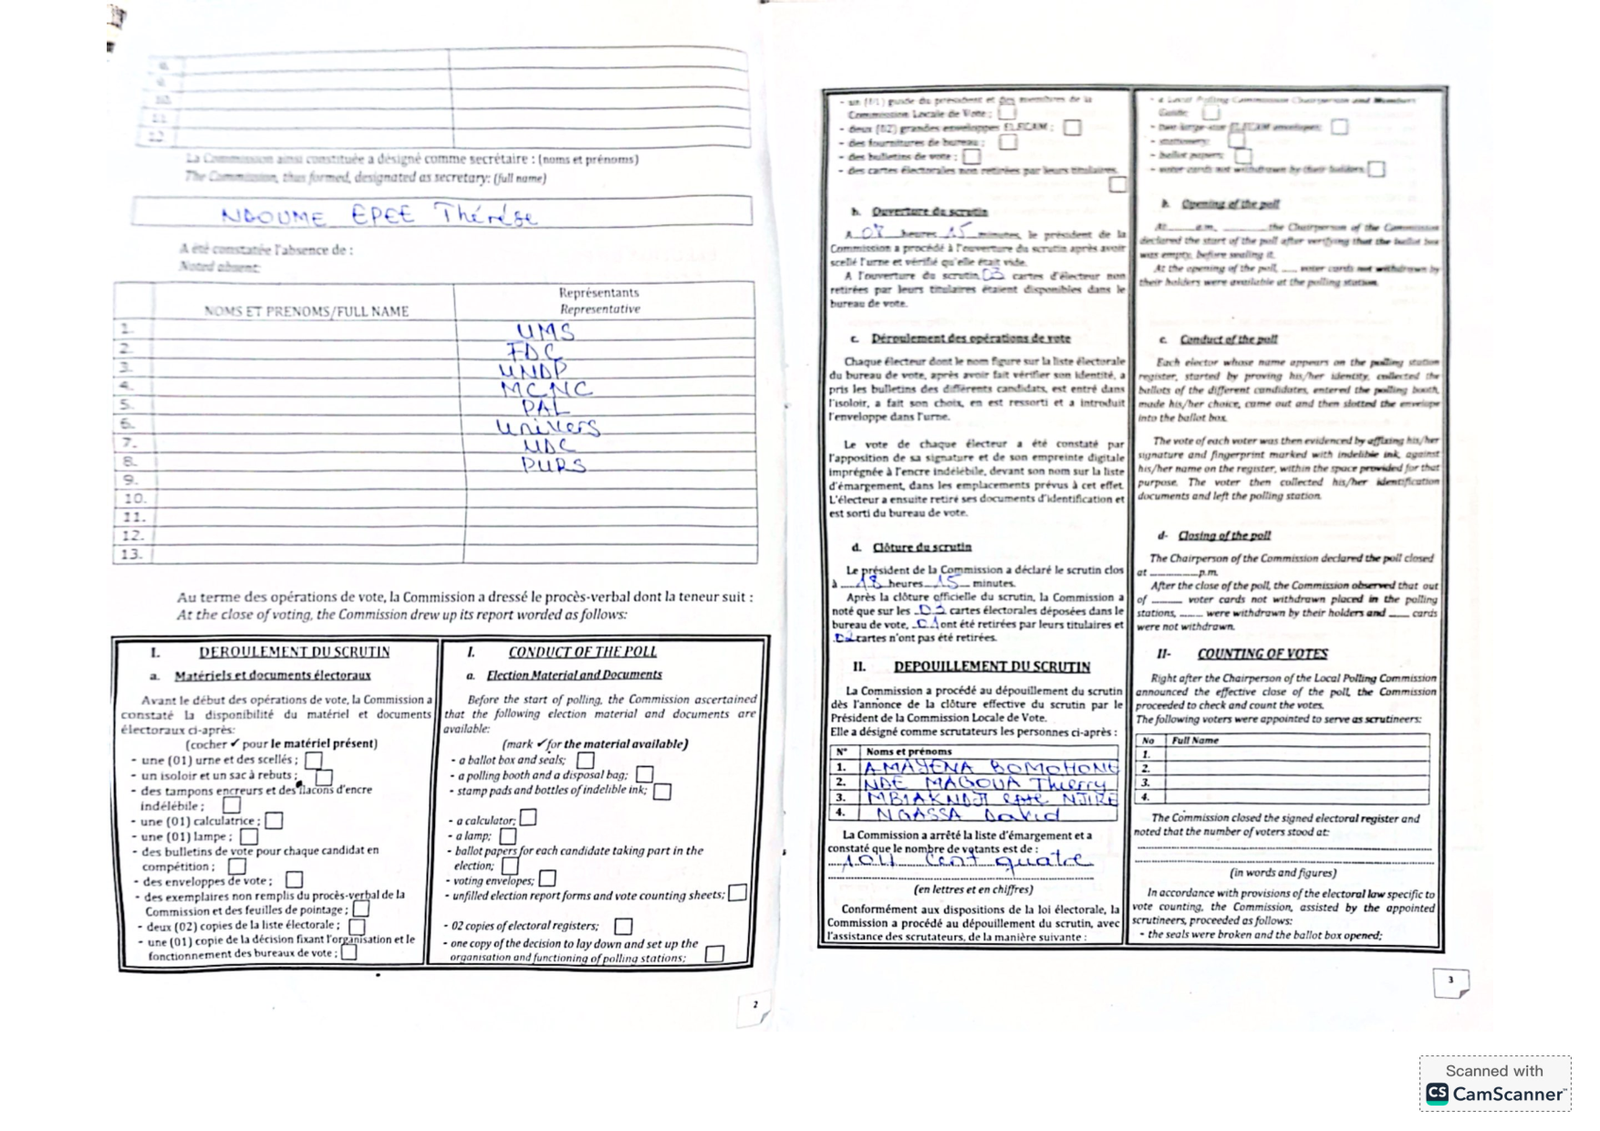 8.
9.
10.
11
12
La Commission ainsi constituée a désigné comme secrétaire : (noms et prénoms)
The Commission, thus formed, designated as secretary: (full name)
NGOUME EPEE Thérèse
A été constatée l'absence de :
Noted absent:
NOMS ET PRENOMS/FULL NAME
Représentants
Representative
1. UMS
2. FDC
3. UNDP
4. MCNC
5. PAL
6. Univers
7. UDC
8. PURS
9.
10.
11.
12.
13.
Au terme des opérations de vote, la Commission a dressé le procès-verbal dont la teneur suit :
At the close of voting, the Commission drew up its report worded as follows:
I. DEROULEMENT DU SCRUTIN
a. Matériels et documents électoraux
Avant le début des opérations de vote, la Commission a
constaté la disponibilité du matériel et documents
électoraux ci-après:
(cocher ✓ pour le matériel présent)
- une (01) urne et des scellés ;
- un isoloir et un sac à rebuts ;
- des tampons encreurs et des flacons d'encre
indélébile ;
- une (01) calculatrice ;
- une (01) lampe ;
- des bulletins de vote pour chaque candidat en
compétition ;
- des enveloppes de vote ;
- des exemplaires non remplis du procès-verbal de la
Commission et des feuilles de pointage ;
- deux (02) copies de la liste électorale ;
- une (01) copie de la décision fixant l'organisation et le
fonctionnement des bureaux de vote ;
I. CONDUCT OF THE POLL
a. Election Material and Documents
Before the start of polling, the Commission ascertained
that the following election material and documents are
available:
(mark ✓ for the material available)
- a ballot box and seals;
- a polling booth and a disposal bag;
- stamp pads and bottles of indelible ink;
- a calculator;
- a lamp;
- ballot papers for each candidate taking part in the
election;
- voting envelopes;
- unfilled election report forms and vote counting sheets;
- 02 copies of electoral registers;
- one copy of the decision to lay down and set up the
organisation and functioning of polling stations;
2
- un (01) guide du président et des membres de la
Commission Locale de Vote ;
- deux (02) grandes enveloppes ELECAM ;
- des fournitures de bureau ;
- des bulletins de vote ;
- des cartes électorales non retirées par leurs titulaires.
b. Ouverture du scrutin
A 08 heures 15 minutes, le président de la
Commission a procédé à l'ouverture du scrutin après avoir
scellé l'urne et vérifié qu'elle était vide.
A l'ouverture du scrutin 03 cartes d'électeur non
retirées par leurs titulaires étaient disponibles dans le
bureau de vote.
c. Déroulement des opérations de vote
Chaque électeur dont le nom figure sur la liste électorale
du bureau de vote, après avoir fait vérifier son identité, a
pris les bulletins des différents candidats, est entré dans
l'isoloir, a fait son choix, en est ressorti et a introduit
l'enveloppe dans l'urne.
Le vote de chaque électeur a été constaté par
l'apposition de sa signature et de son empreinte digitale
imprégnée à l'encre indélébile, devant son nom sur la liste
d'émargement, dans les emplacements prévus à cet effet.
L'électeur a ensuite retiré ses documents d'identification et
est sorti du bureau de vote.
d. Clôture du scrutin
Le président de la Commission a déclaré le scrutin clos
à 18 heures 15 minutes.
Après la clôture officielle du scrutin, la Commission a
noté que sur les 03 cartes électorales déposées dans le
bureau de vote, 01 ont été retirées par leurs titulaires et
02 cartes n'ont pas été retirées.
II. DEPOUILLEMENT DU SCRUTIN
La Commission a procédé au dépouillement du scrutin
dès l'annonce de la clôture effective du scrutin par le
Président de la Commission Locale de Vote.
Elle a désigné comme scrutateurs les personnes ci-après :
N° Noms et prénoms
1. AMAYENA BOMOHONG
2. NDE MAGOUA Thierry
3. MBIAKNDJI epse NJIKE
4. NGASSA David
La Commission a arrêté la liste d'émargement et a
constaté que le nombre de votants est de :
104 cent quatre
(en lettres et en chiffres)
Conformément aux dispositions de la loi électorale, la
Commission a procédé au dépouillement du scrutin, avec
l'assistance des scrutateurs, de la manière suivante :
- a Local Polling Commission Chairperson and Members'
Guide;
- two large-size ELECAM envelopes;
- stationery;
- ballot papers;
- voter cards not withdrawn by their holders.
b. Opening of the poll
At ____ a.m. ____ the Chairperson of the Commission
declared the start of the poll after verifying that the ballot box
was empty, before sealing it.
At the opening of the poll, ___ voter cards not withdrawn by
their holders were available at the polling station.
c. Conduct of the poll
Each elector whose name appears on the polling station
register, started by proving his/her identity, collected the
ballots of the different candidates, entered the polling booth,
made his/her choice, came out and then slotted the envelope
into the ballot box.
The vote of each voter was then evidenced by affixing his/her
signature and fingerprint marked with indelible ink, against
his/her name on the register, within the space provided for that
purpose. The voter then collected his/her identification
documents and left the polling station.
d- Closing of the poll
The Chairperson of the Commission declared the poll closed
at ____ p.m.
After the close of the poll, the Commission observed that out
of ____ voter cards not withdrawn placed in the polling
stations, ____ were withdrawn by their holders and ____ cards
were not withdrawn.
II- COUNTING OF VOTES
Right after the Chairperson of the Local Polling Commission
announced the effective close of the poll, the Commission
proceeded to check and count the votes.
The following voters were appointed to serve as scrutineers:
No Full Name
1.
2.
3.
4.
The Commission closed the signed electoral register and
noted that the number of voters stood at:
(in words and figures)
In accordance with provisions of the electoral law specific to
vote counting, the Commission, assisted by the appointed
scrutineers, proceeded as follows:
- the seals were broken and the ballot box opened;
3
Scanned with
CS CamScanner